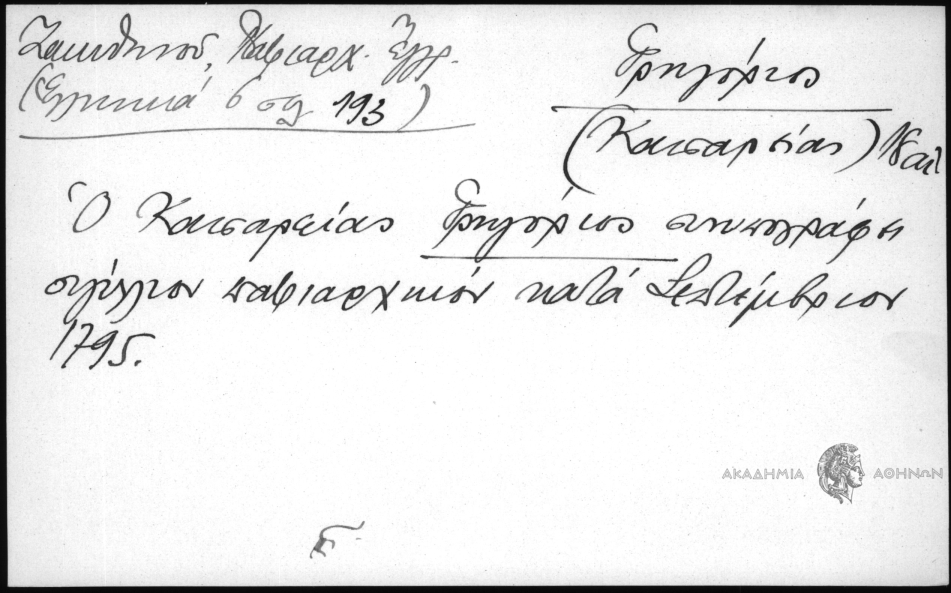 Ζακυθηνοῦ, Πατριαρχ. Ἔγγρ.
(Ἑλληνικά 6 σελ 193)
Γρηγόριος
(Καισαρείας)
Ὁ Καισαρείας Γρηγόριος συνυπογράφει
σιγίλλιον πατριαρχικόν κατά Σεπτέμβριον
1795.
ΑΚΑΔΗΜΙΑ ΑΘΗΝΩΝ